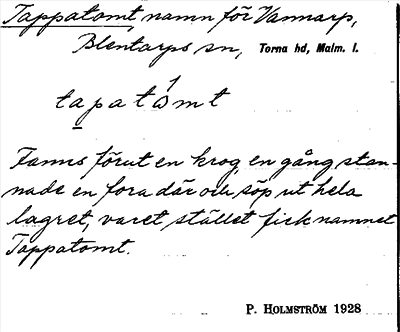 Tappatomt, namn för Vannarp,
Blentarps sn, Torna hd, Malm. l.
tapatómt
Fanns förut en krog, en gång stan-
nade en fora där och söp ut hela
lagret, varet stället fick namnet
Tappatomt.
P. HOLMSTRÖM 1928